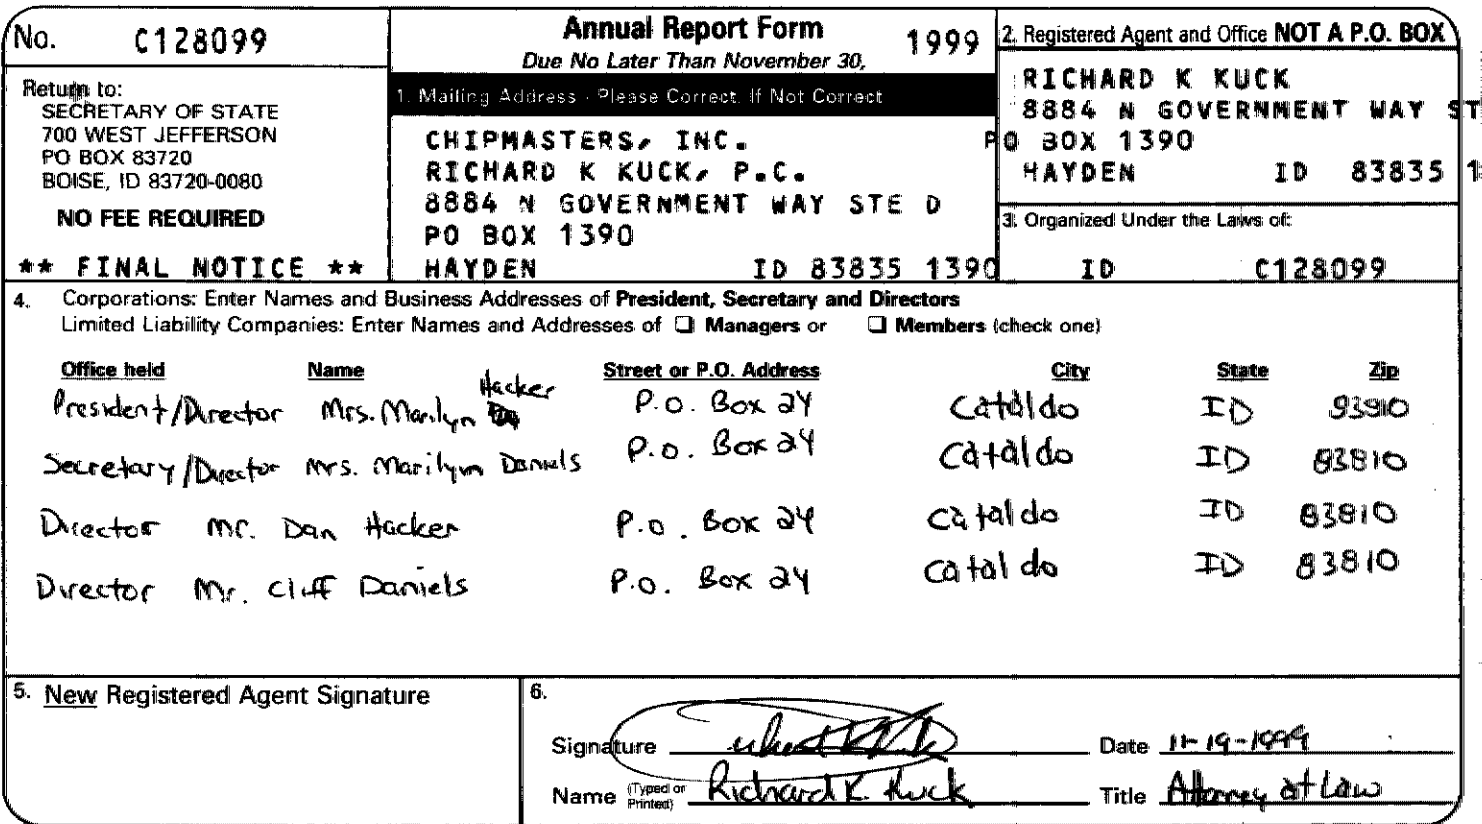 No. C128099
Return to:
SECRETARY OF STATE
700 WEST JEFFERSON
PO BOX 83720
BOISE, ID 83720-0080
NO FEE REQUIRED
** FINAL NOTICE **
Annual Report Form 1999
Due No Later Than November 30,
1. Mailing Address - Please Correct, If Not Correct
CHIPMASTERS, INC.
RICHARD K KUCK, P.C.
8884 N GOVERNMENT WAY STE D
PO BOX 1390
HAYDEN ID 83835 1390
2. Registered Agent and Office NOT A P.O. BOX
RICHARD K KUCK
8884 N GOVERNMENT WAY ST
PO BOX 1390
HAYDEN ID 83835 1
3. Organized Under the Laws of:
ID C128099
4. Corporations: Enter Names and Business Addresses of President, Secretary and Directors
Limited Liability Companies: Enter Names and Addresses of ☐ Managers or ☐ Members (check one)
Office held Name Street or P.O. Address City State Zip
President/Director Mrs. Marilyn Hacker P.O. Box 24 Cataldo ID 83810
Secretary/Director Mrs. Marilym Daniels P.O. Box 24 Cataldo ID 83810
Director Mr. Dan Hacker P.O. Box 24 Cataldo ID 83810
Director Mr. Cliff Daniels P.O. Box 24 Cataldo ID 83810
5. New Registered Agent Signature
6.
Signature Date 11-19-1999
Name (Typed or Printed) Richard K. Kuck Title Attorney at Law